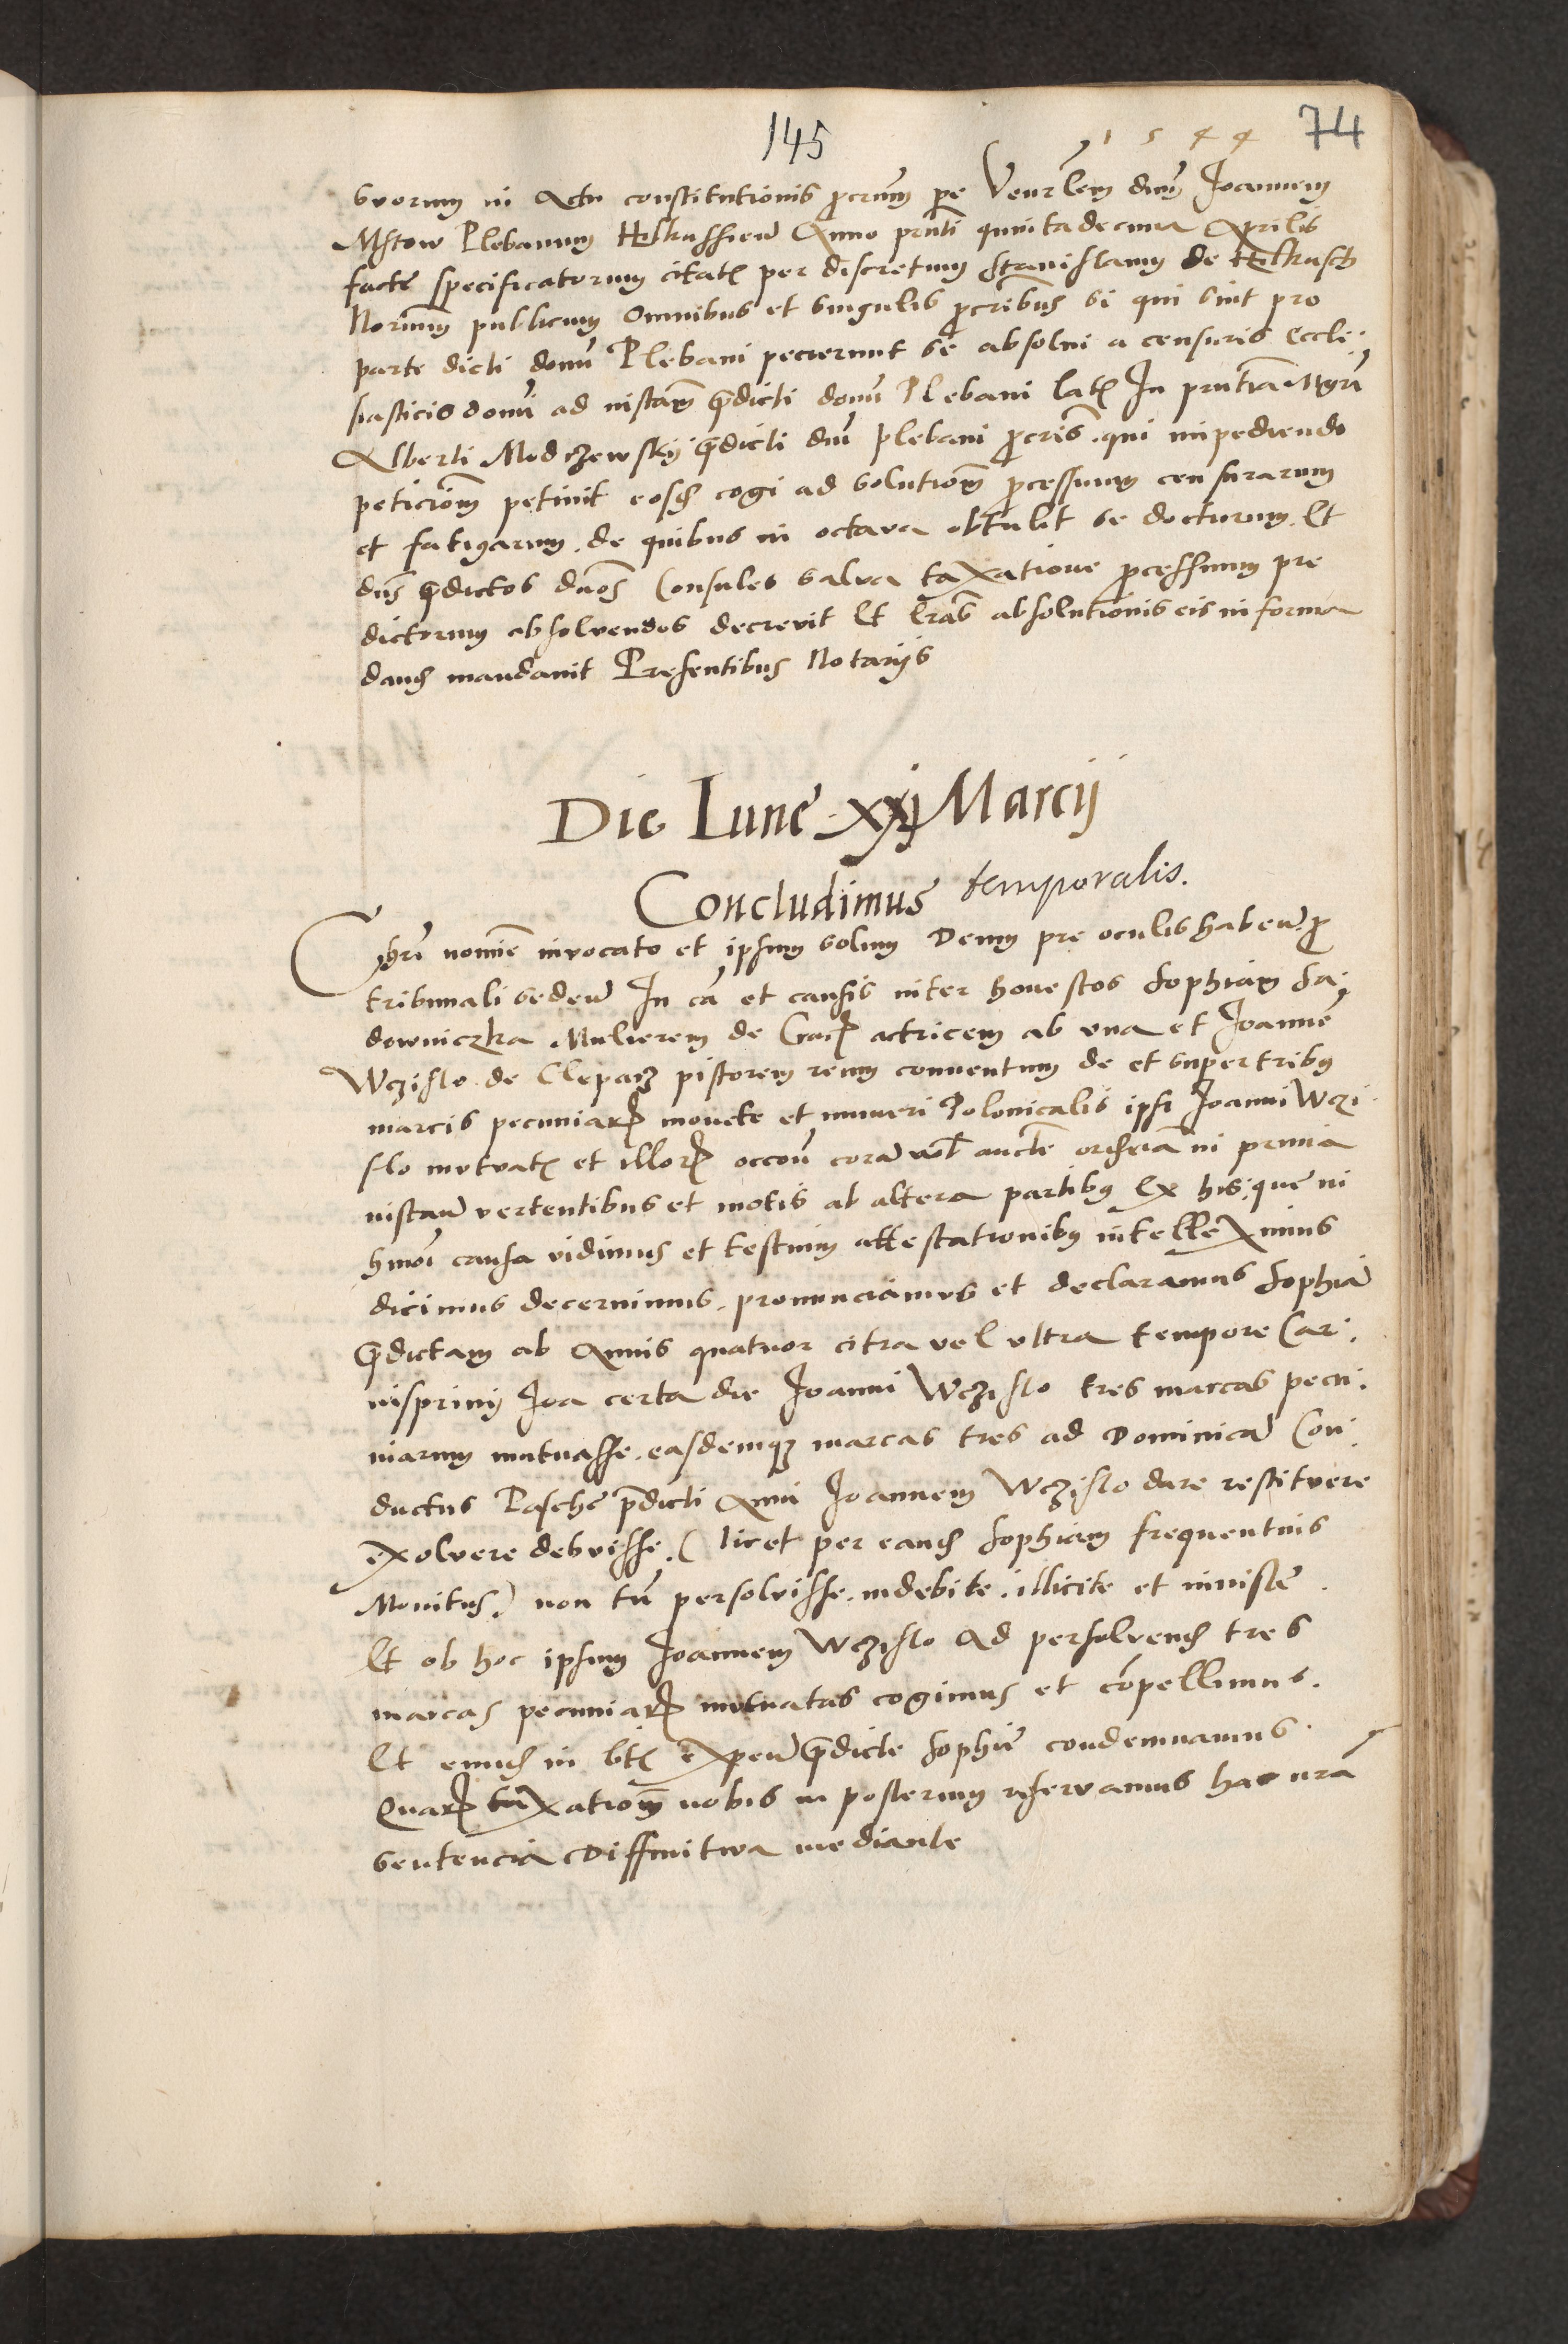 145
1 5 4 4
74
suorum in Actu constitutionis procrum per Venerlem dnm Joannem
Mstow Plebanum Ilkussien Anno prnti quintadecima Aprilis
facte specificatorum citat per discretum Stanislaum de Ilkusch
Norium publicum Omnibus et singulis procribus si qui sint pro
parte dicti domini Plebani pecierunt se absolui a censuris Eccli
siasticis domini ad instam predicti domini Plebani lat In pruntia Mgri
Alberti Modrzewskij predicti dni plebani procris. qui impediendo
peticiom petiuit eosd cogi ad solutiom processuum censurarum
et fatigarum. de quibus in octava obtulit se docturum. Et
dns predictos dnos Consules salua taxatione processuum pre
dictorum absoluendos decrevit Et lras absolutionis eis in forma
dand mandauit Presentibus Notarijs
Die Lune xxi Marcij
Concludimus temporalis.
Chri nomie invocato et ipsum solum Deum pre oculis haben pro
tribunali seden In ca et causis inter honestos Sophiam Sa
downiczka Mulierem de Crac actricem ab una et Joanne
Wczislo de Clepacz pistorem reum conuentum de et super tribus
marcis pecuniar monete et numeri Polonicalis ipsi Joanni Wczi
slo mutuat et illor occon cora nob aucte ordria in prima
instan vertentibus et motis ab altera partibus Ex his que in
hmoi causa vidimus et testium attestationibus intelleximus
dicimus decernimus. pronunciamus et declaramus Sophia
predictam ab Annis quatuor citra vel ultra tempore Car
nisprivij Ioa certa die Joanni Wczislo tres marcas pecu
niarum mutuasse. easdemque marcas tres ad Dominica Con
ductus Pasche predicti Anni Joannem Wczislo dare restituere
exolvere debuisse. (licet per eand Sophiam frequentius
Monitus) non tn persolvisse. indebite. illicite et iniuste
Et ob hoc ipsum Joannem Wczislo Ad persolvend tres
marcas pecuniar mutuatas cogimus et compellimus.
Et eund in litis expen predicte Sophie condemnamus.
Quar taxatiom nobis in posterum reservamus hac nra
sentencia Diffinitiva mediante